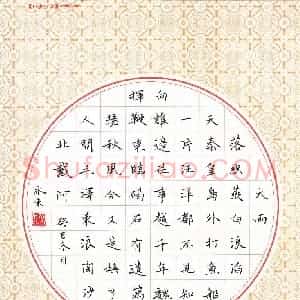 大雨
落幽燕白浪滔
天秦皇島外打魚船
一片汪洋都不見知
向誰邊往事越千年魏
揮鞭東臨碣石有遺篇
蕭瑟秋風今又是換了
人間毛澤東浪淘沙
北戴河
Shufaziliao.com